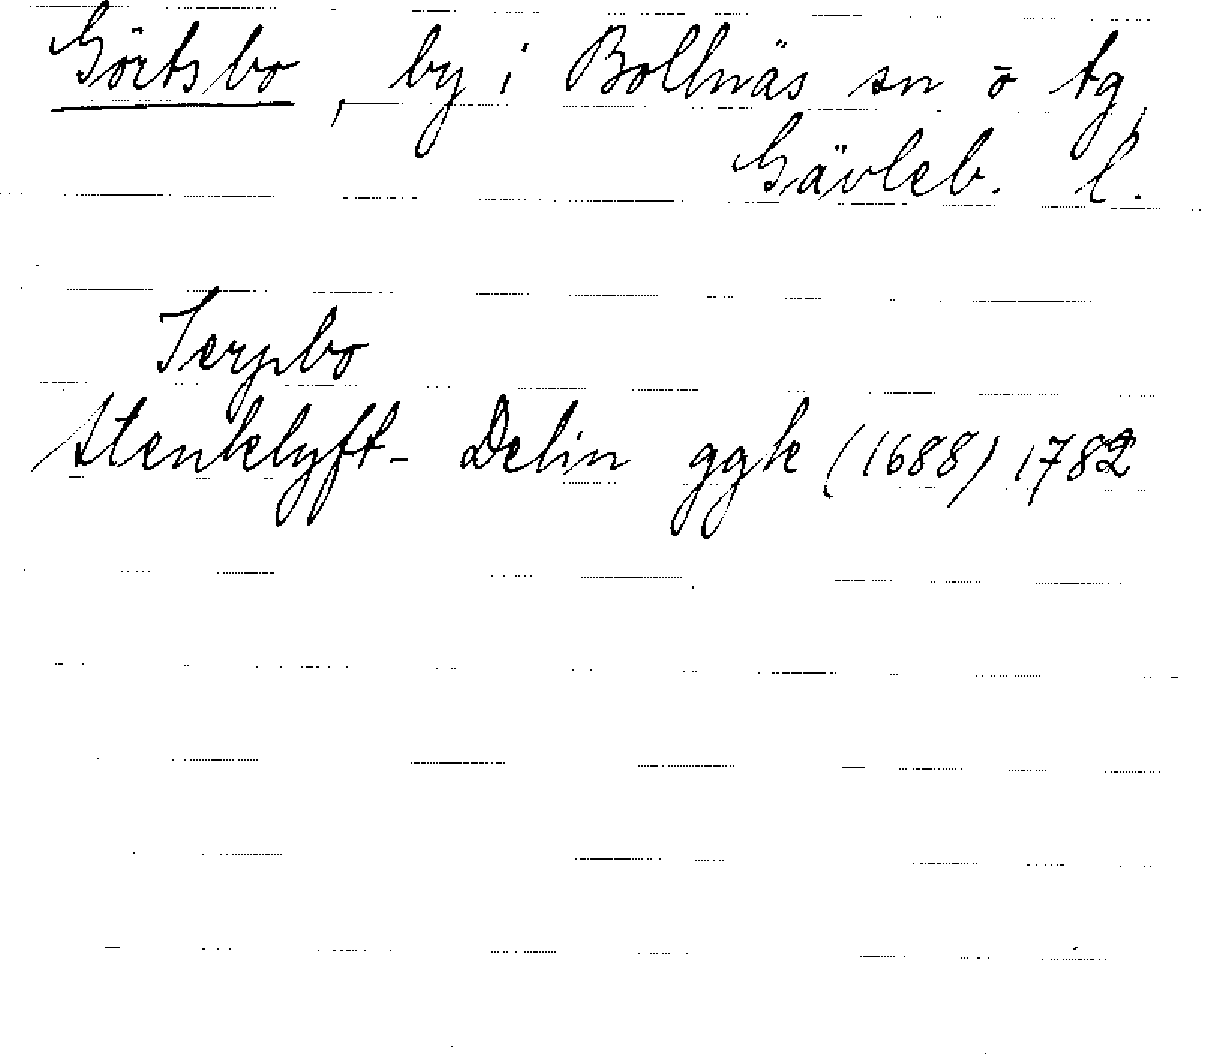 Görtsbo, by i Bollnäs sn o tg,
Gävleb. l.
Serpbo
Stenklyft- Delin ggk (1688) 1782